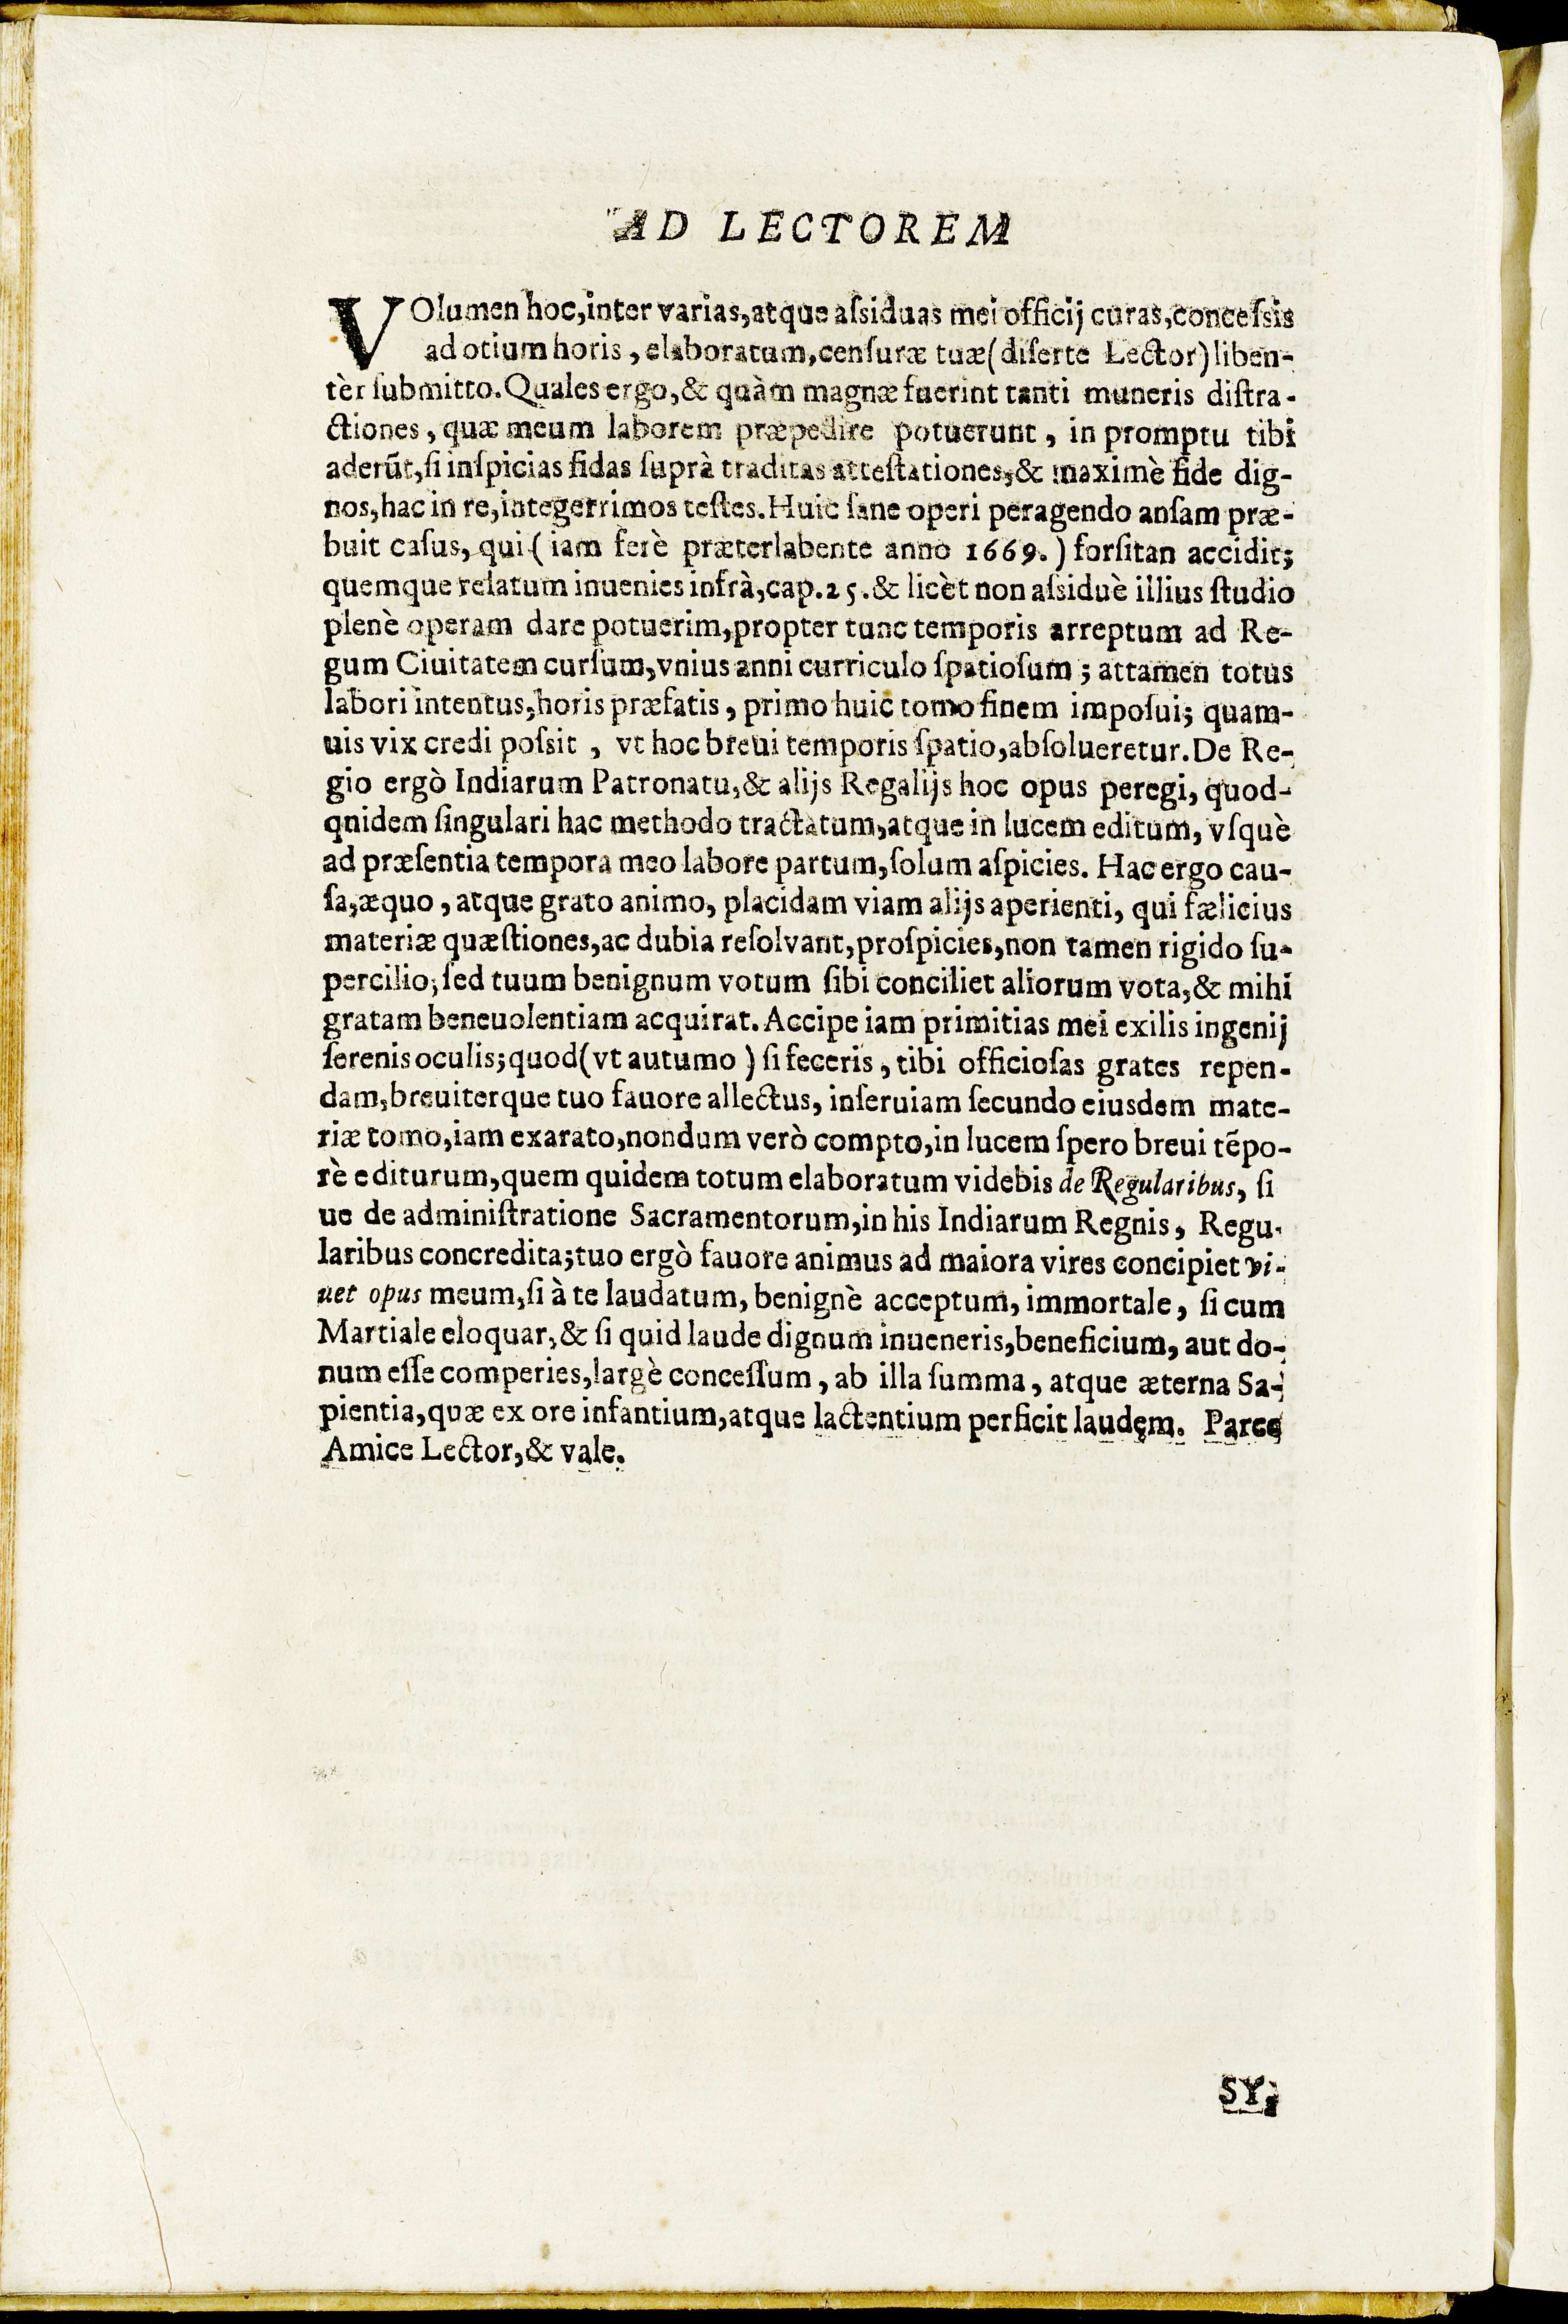 AD LECTOREM
VOlumen hoc,inter varias,atque aſsiduas mei officij curas,conceſsis
ad otium horis, elaboratum,cenſuræ tuæ(diſerte Lector)liben-
tèr ſubmitto.Quales ergo,& quàm magnæ fuerint tanti muneris diſtra-
ctiones, quæ meum laborem præpedire potuerunt, in promptu tibi
aderũt,ſi inſpicias fidas ſuprà traditas atteſtationes,& maximè fide dig-
nos,hac in re,integerrimos teſtes.Huic ſane operi peragendo anſam præ-
buit caſus, qui (iam ferè præterlabente anno 1669.) forſitan accidit;
quemque relatum inuenies infrà,cap.25.& licèt non aſsiduè illius ſtudio
plenè operam dare potuerim,propter tunc temporis arreptum ad Re-
gum Ciuitatem curſum,vnius anni curriculo ſpatioſum; attamen totus
labori intentus,horis præfatis, primo huic tomo finem impoſui; quam-
uis vix credi poſsit, vt hoc breui temporis ſpatio,abſolueretur.De Re-
gio ergò Indiarum Patronatu,& alijs Regalijs hoc opus peregi, quod-
qnidem ſingulari hac methodo tractatum,atque in lucem editum, vſquè
ad præſentia tempora meo labore partum,ſolum aſpicies. Hac ergo cau-
ſa,æquo, atque grato animo, placidam viam alijs aperienti, qui fælicius
materiæ quæſtiones,ac dubia reſolvant,proſpicies,non tamen rigido ſu-
percilio;ſed tuum benignum votum ſibi conciliet aliorum vota,& mihi
gratam beneuolentiam acquirat.Accipe iam primitias mei exilis ingenij
ſerenis oculis;quod(vt autumo) ſi feceris, tibi officioſas grates repen-
dam,breuiterque tuo fauore allectus, inſeruiam ſecundo eiusdem mate-
riæ tomo,iam exarato,nondum verò compto,in lucem ſpero breui tẽpo-
rè editurum,quem quidem totum elaboratum videbis de Regularibus, ſi
ue de adminiſtratione Sacramentorum,in his Indiarum Regnis, Regu-
laribus concredita;tuo ergò fauore animus ad maiora vires concipiet vi-
uet opus meum,ſi à te laudatum, benignè acceptum, immortale, ſi cum
Martiale eloquar,& ſi quid laude dignum inueneris,beneficium, aut do-
num eſſe comperies,largè conceſſum, ab illa ſumma, atque æterna Sa-
pientia,quæ ex ore infantium,atque lactentium perficit laudem. Parce
Amice Lector,& vale.
SY-